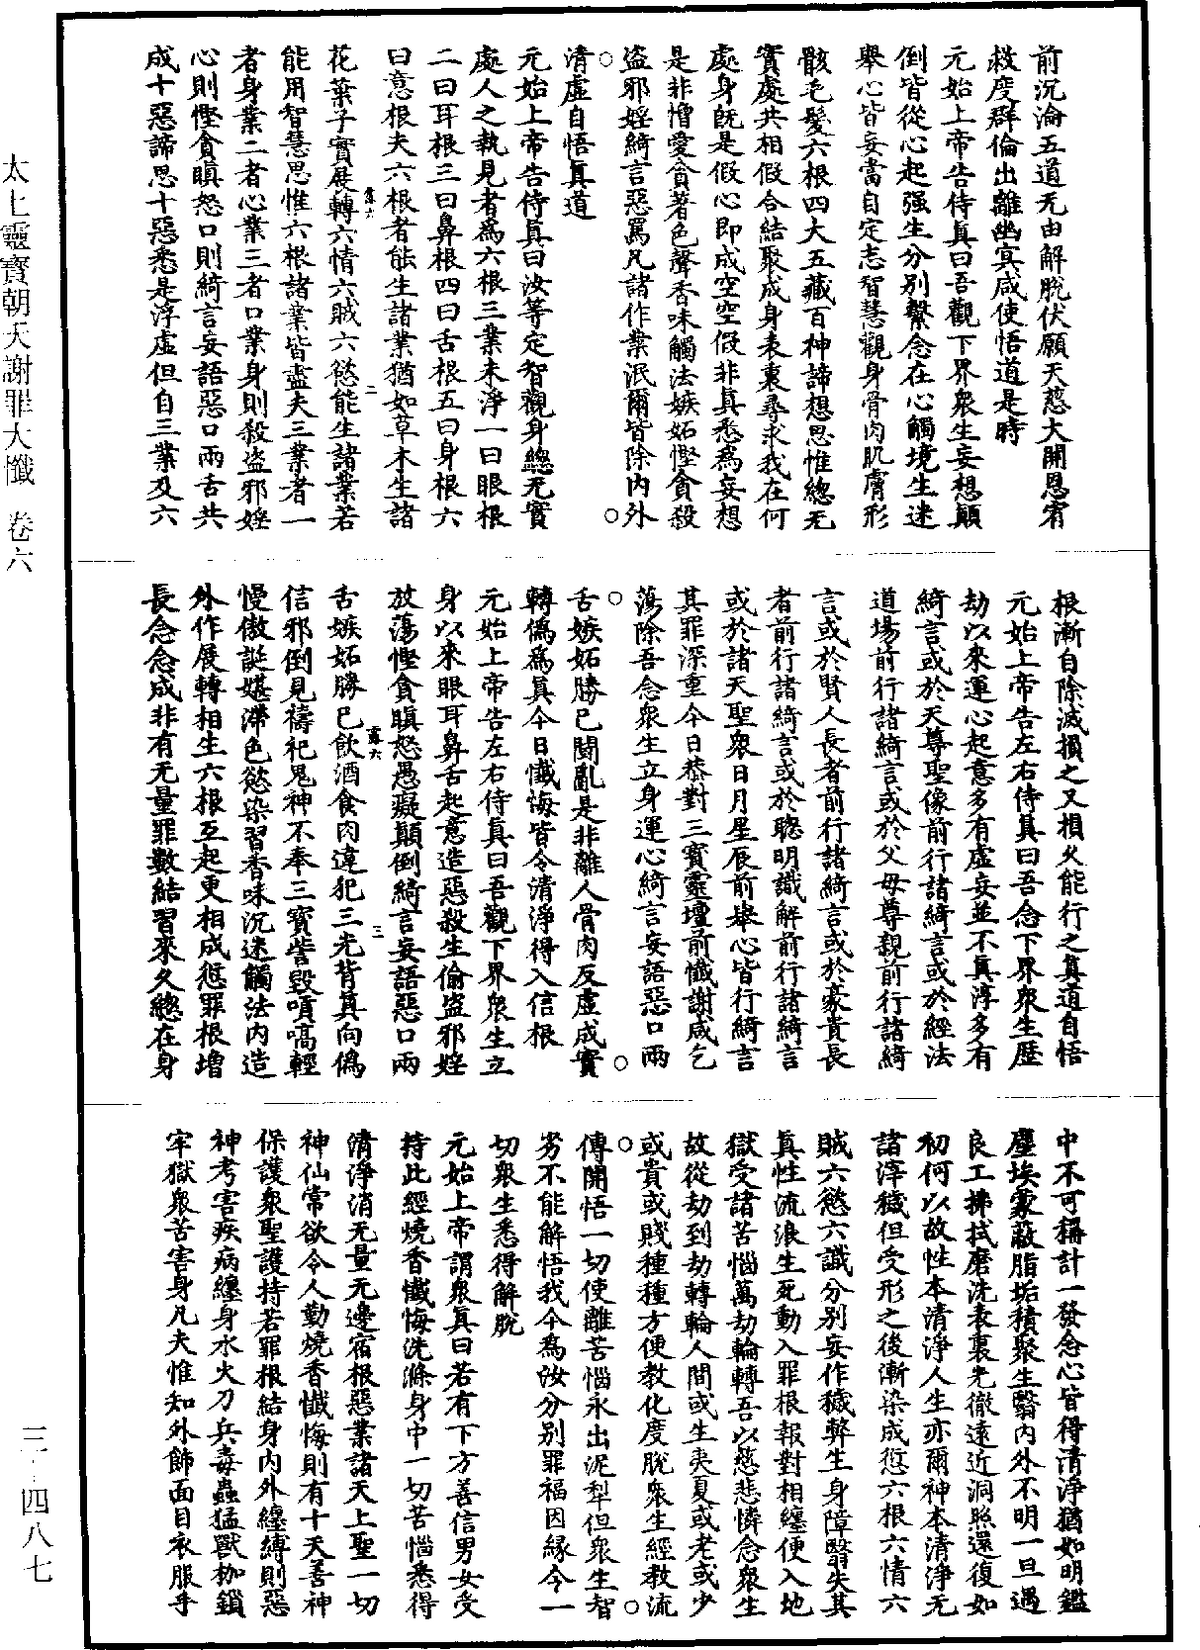 前沉淪五道无由解脫伏願天慈大開恩宥
救度群倫出離幽冥咸使悟道是時
元始上帝告侍真曰吾觀下界衆生妄想顛
倒皆從心起强生分别繫念在心觸境生迷
舉心皆妄當自定志智慧觀身骨肉肌膚形
骸毛髮六根四大五藏百神諦想思惟總无
實處共相假合結聚成身表裏尋求我在何
處身既是假心即成空空假非真悉為妄想
是非憎愛貪著色聲香味觸法嫉妬慳貪殺
盜邪婬綺言惡罵凡諸作業泯爾皆除内外
清虛自悟真道
元始上帝告侍真曰汝等定智觀身總无實
處人之執見者為六根三業未淨一曰眼根
二曰耳根三曰鼻根四曰舌根五曰身根六
曰意根夫六根者能生諸業猶如草木生諸
露六 二
花葉子實展轉六情六賊六慾能生諸業若
能用智慧思惟六根諸業皆盡夫三業者一
者身業二者心業三者口業身則殺盜邪婬
心則慳貪瞋怒口則綺言妄語惡口兩舌共
成十惡諦思十惡悉是浮虛但自三業及六
根漸自除滅損之又損久能行之真道自悟
元始上帝告左右侍真曰吾念下界衆生歷
劫以來運心起意多有虛妄並不真淳多有
綺言或於天尊聖像前行諸綺言或於經法
道場前行諸綺言或於父母尊親前行諸綺
言或於賢人長者前行諸綺言或於豪貴長
者前行諸綺言或於聰明識解前行諸綺言
或於諸天聖衆日月星辰前舉心皆行綺言
其罪深重今日恭對三寶靈壇前懺謝咸乞
蕩除吾念衆生立身運心綺言妄語惡口兩
舌嫉妬勝己鬪亂是非離人骨肉反虛成實
轉僞為真今日懺悔皆令清淨得入信根
元始上帝告左右侍真曰吾觀下界衆生立
身以來眼耳鼻舌起意造惡殺生偷盜邪婬
放蕩慳貪瞋怒愚癡顛倒綺言妄語惡口兩
露六 三
舌嫉妬勝己飲酒食肉違犯三光背真向僞
信邪倒見禱祀鬼神不奉三寶訾毀嗔嗃輕
慢傲誕媅滯色慾染習香味沉迷觸法内造
外作展轉相生六根互起更相成愆罪根增
長念念成非有无量罪數結習來久總在身
中不可稱計一發念心皆得清淨猶如明鑑
塵埃蒙蔽脂垢積聚生翳内外不明一旦遇
良工拂拭磨洗表裏光徹遠近洞照還復如
初何以故性本清淨人生亦爾神本清淨无
諸滓穢但受形之後漸染成愆六根六情六
賊六慾六識分别妄作穢弊生身障翳失其
真性流浪生死動入罪根報對相纏便入地
獄受諸苦惱萬劫輪轉吾以慈悲憐念衆生
故從劫到劫轉輪人間或生夷夏或老或少
或貴或賤種種方便教化度脫衆生經教流
傳開悟一切使離苦惱永出泥犁但衆生智
劣不能解悟我今為汝分别罪福因緣令一
切衆生悉得解脫
元始上帝謂衆真曰若有下方善信男女受
持此經燒香懺悔洗滌身中一切苦惱悉得
清淨消无量无邊宿根惡業諸天上聖一切
神仙常欲令人勤燒香懺悔則有十天善神
保護衆聖護持若罪根結身内外纏縛則惡
神考害疾病纏身水火刀兵毒蟲猛獸枷鎖
牢獄衆苦害身凡夫惟知外飾面目衣服乎
太上靈寶朝天謝罪大懺 卷六
三·四八七